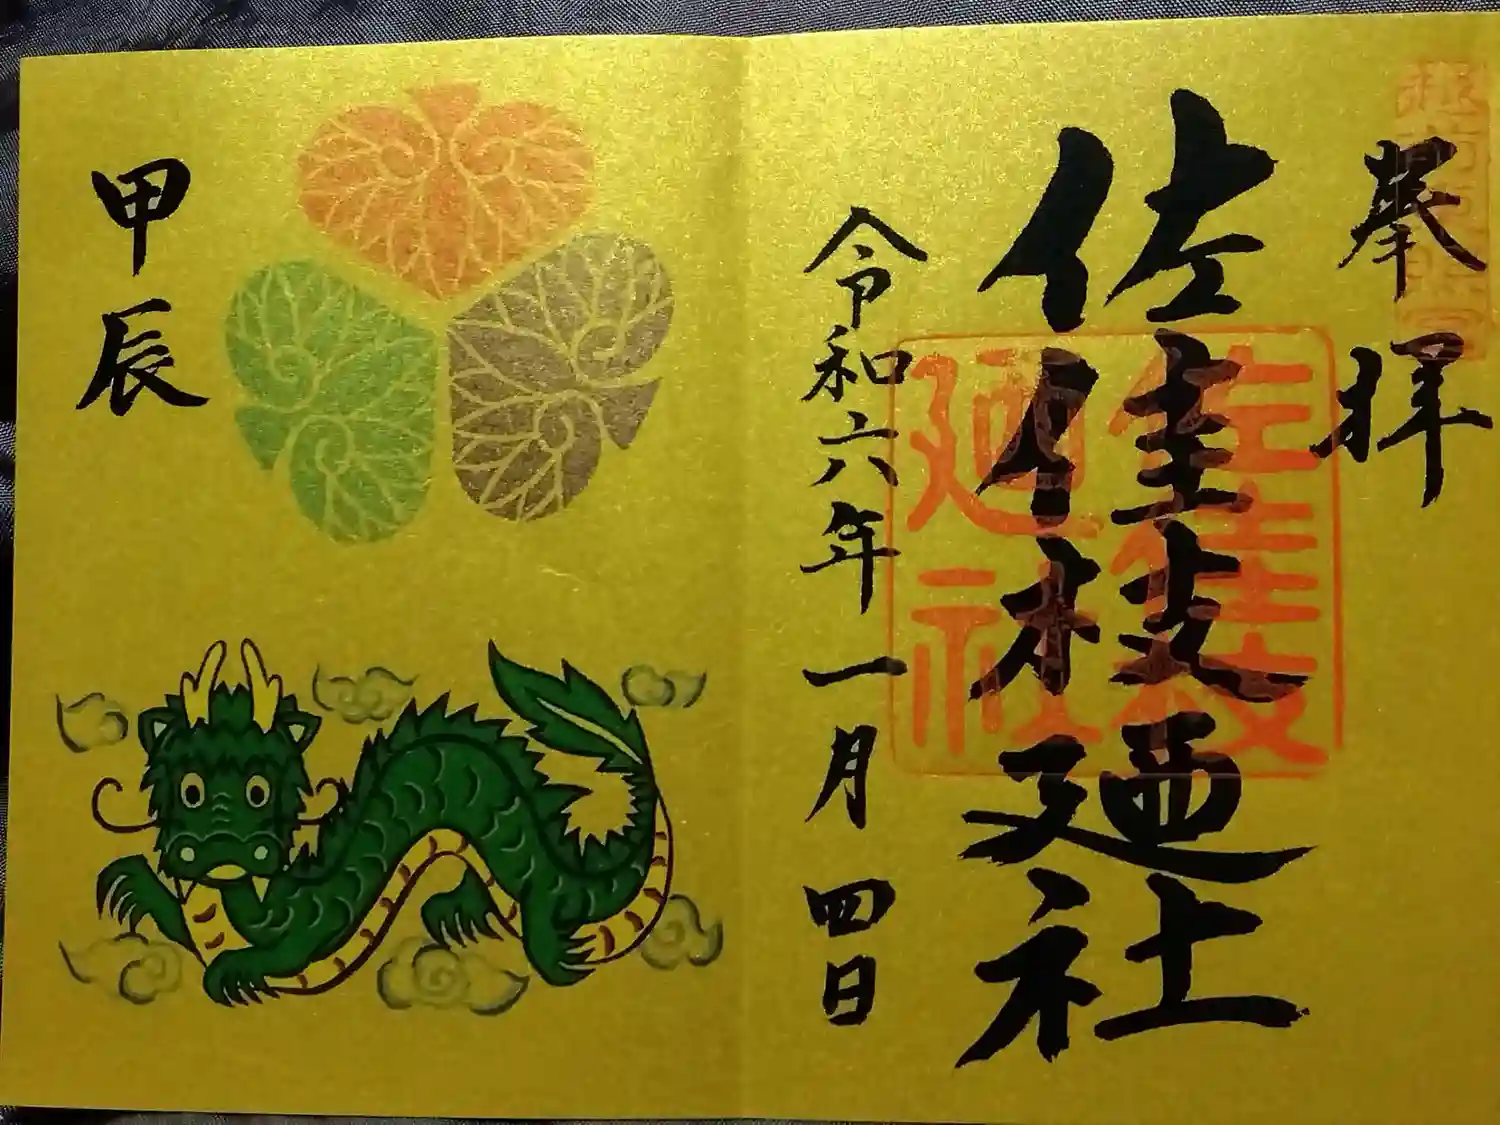 奉拝
佐佳枝廼社
佐佳枝廼社
令和六年一月四日
甲辰